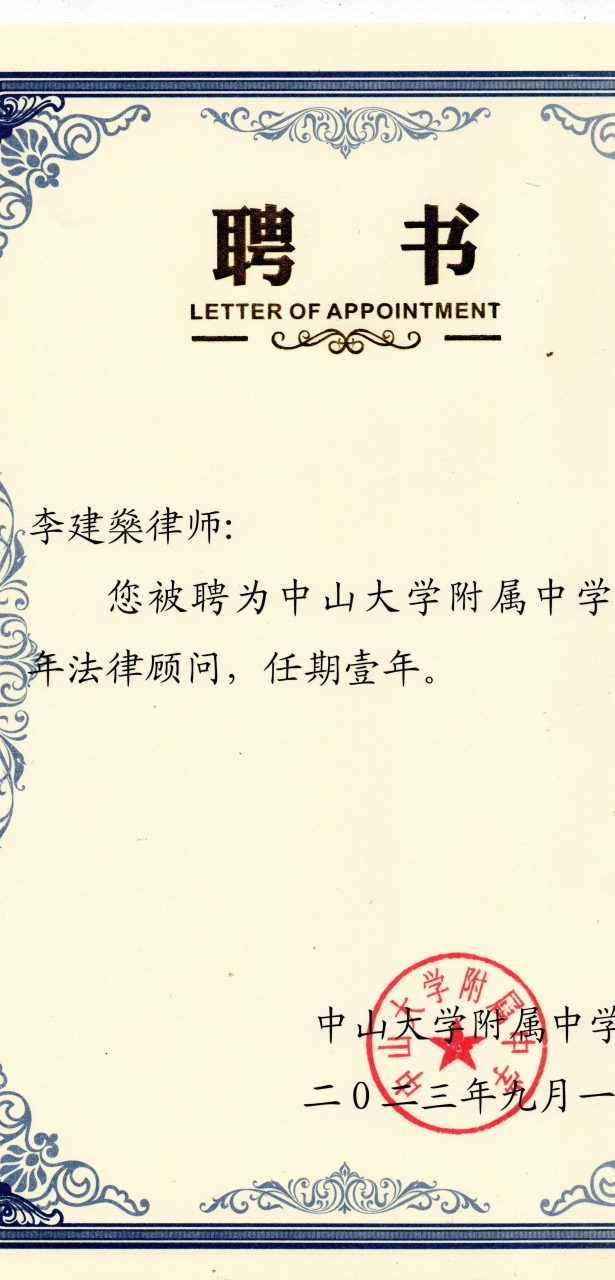 聘 书
LETTER OF APPOINTMENT
李建燊律师:
您被聘为中山大学附属中学
年法律顾问，任期壹年。
中山大学附属中学
中山大学附属中学
二0二三年九月一